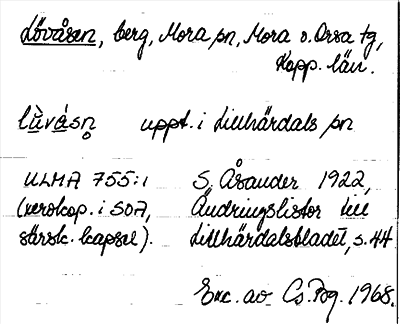 Lövåsen, berg, Mora sn, Mora o. Orsa tg,
Kopp. län.
lùvásn̥ uppt. i Lillhärdals sn
ULMA 755:1 S. Åsander 1922,
(xeroxkop. i SOA, Ändringslistor till
särsk. kapsel). Lillhärdalsbladet, s. 44
Exc. av Cs. Pog. 1968.